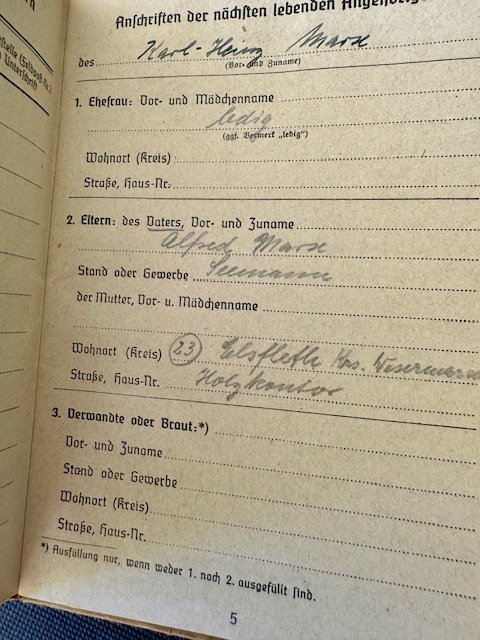 Anschriften der nächsten lebenden Angehörigen
des Karl-Heinz Marx
(Vor- und Zuname)
1. Ehefrau: Vor- und Mädchenname
ledig
(ggf. Vermerk „ledig“)
Wohnort (Kreis)
Straße, Haus-Nr.
2. Eltern: des Vaters, Vor- und Zuname
Alfred Marx
Stand oder Gewerbe Seemann
der Mutter, Vor- u. Mädchenname
Wohnort (Kreis) (23) Elsfleth Krs. Wesermarsch
Straße, Haus-Nr. Holzkontor
3. Verwandte oder Braut:*)
Vor- und Zuname
Stand oder Gewerbe
Wohnort (Kreis)
Straße, Haus-Nr.
*) Ausfüllung nur, wenn weder 1. noch 2. ausgefüllt sind.
5